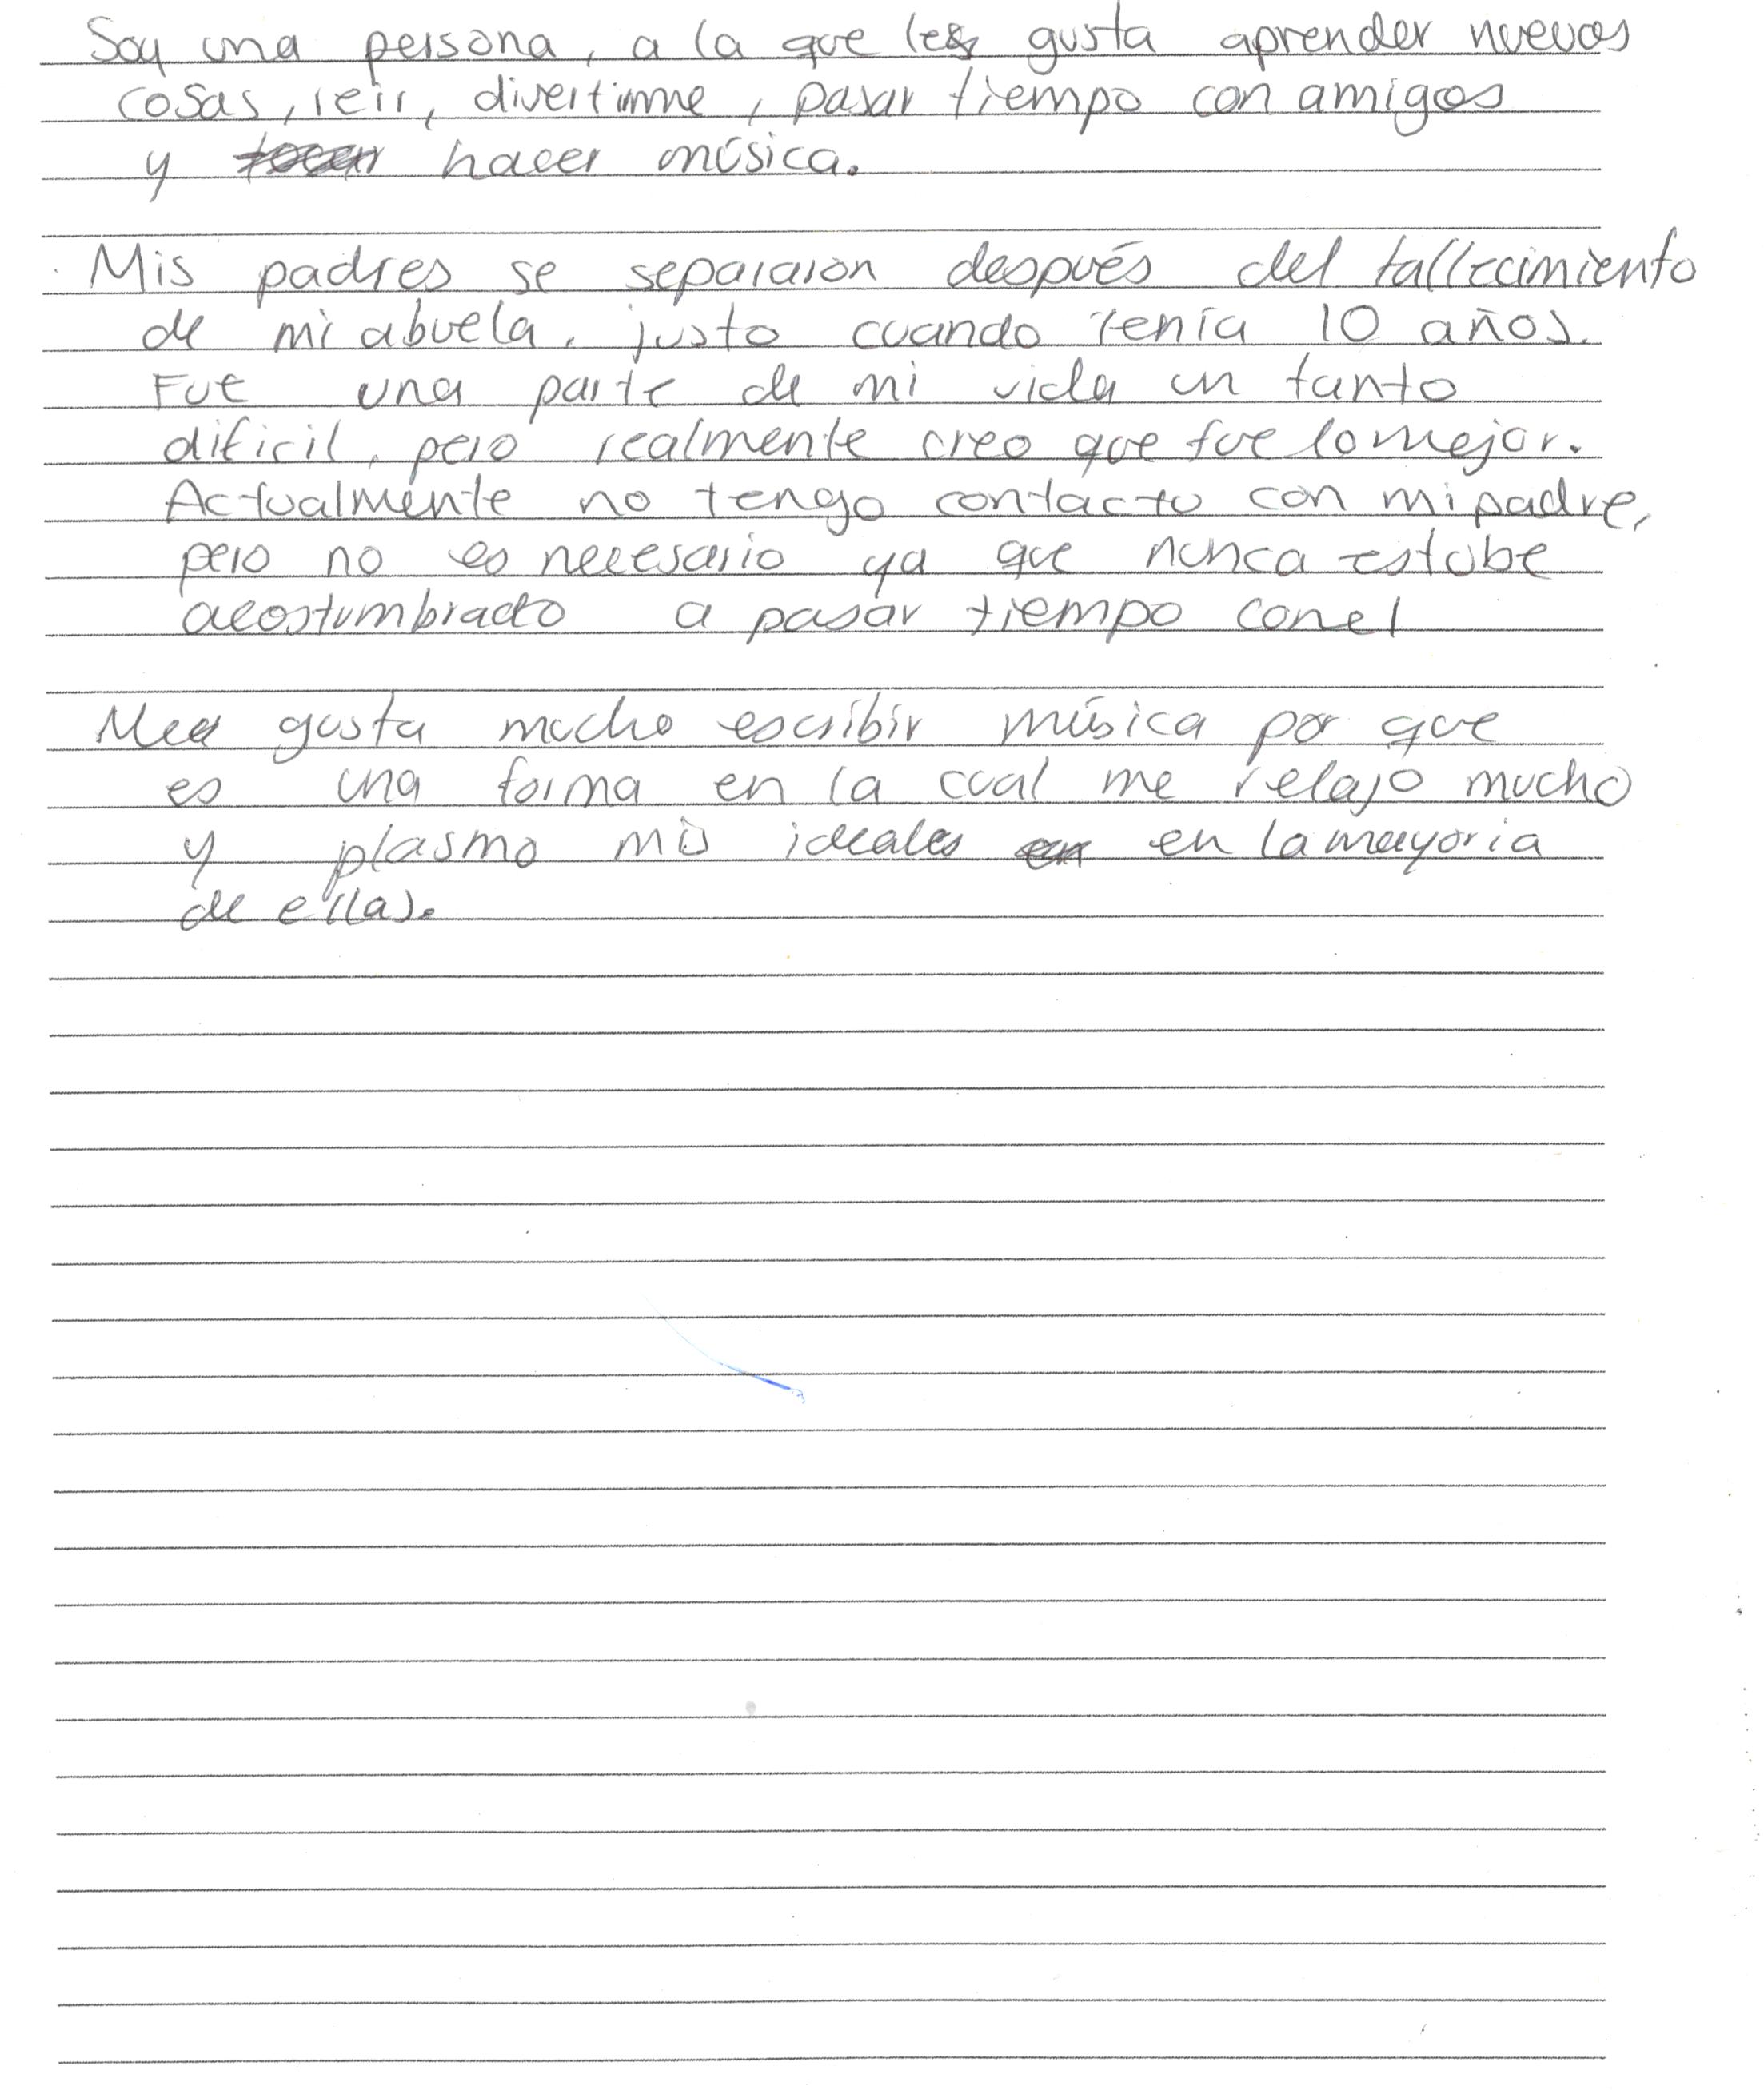 Soy una persona, a la que les gusta aprender nuevas
cosas, reir, divertirme, pasar tiempo con amigos
y hacer música.
Mis padres se separaron después del fallecimiento
de mi abuela, justo cuando tenía 10 años.
Fue una parte de mi vida un tanto
dificil, pero realmente creo que fue lo mejor.
Actualmente no tengo contacto con mi padre,
pero no es necesario ya que nunca estube
acostumbrado a pasar tiempo con el
Me gusta mucho escribir música por que
es una forma en la cual me relajo mucho
y plasmo mis ideales en la mayoria
de ellas.